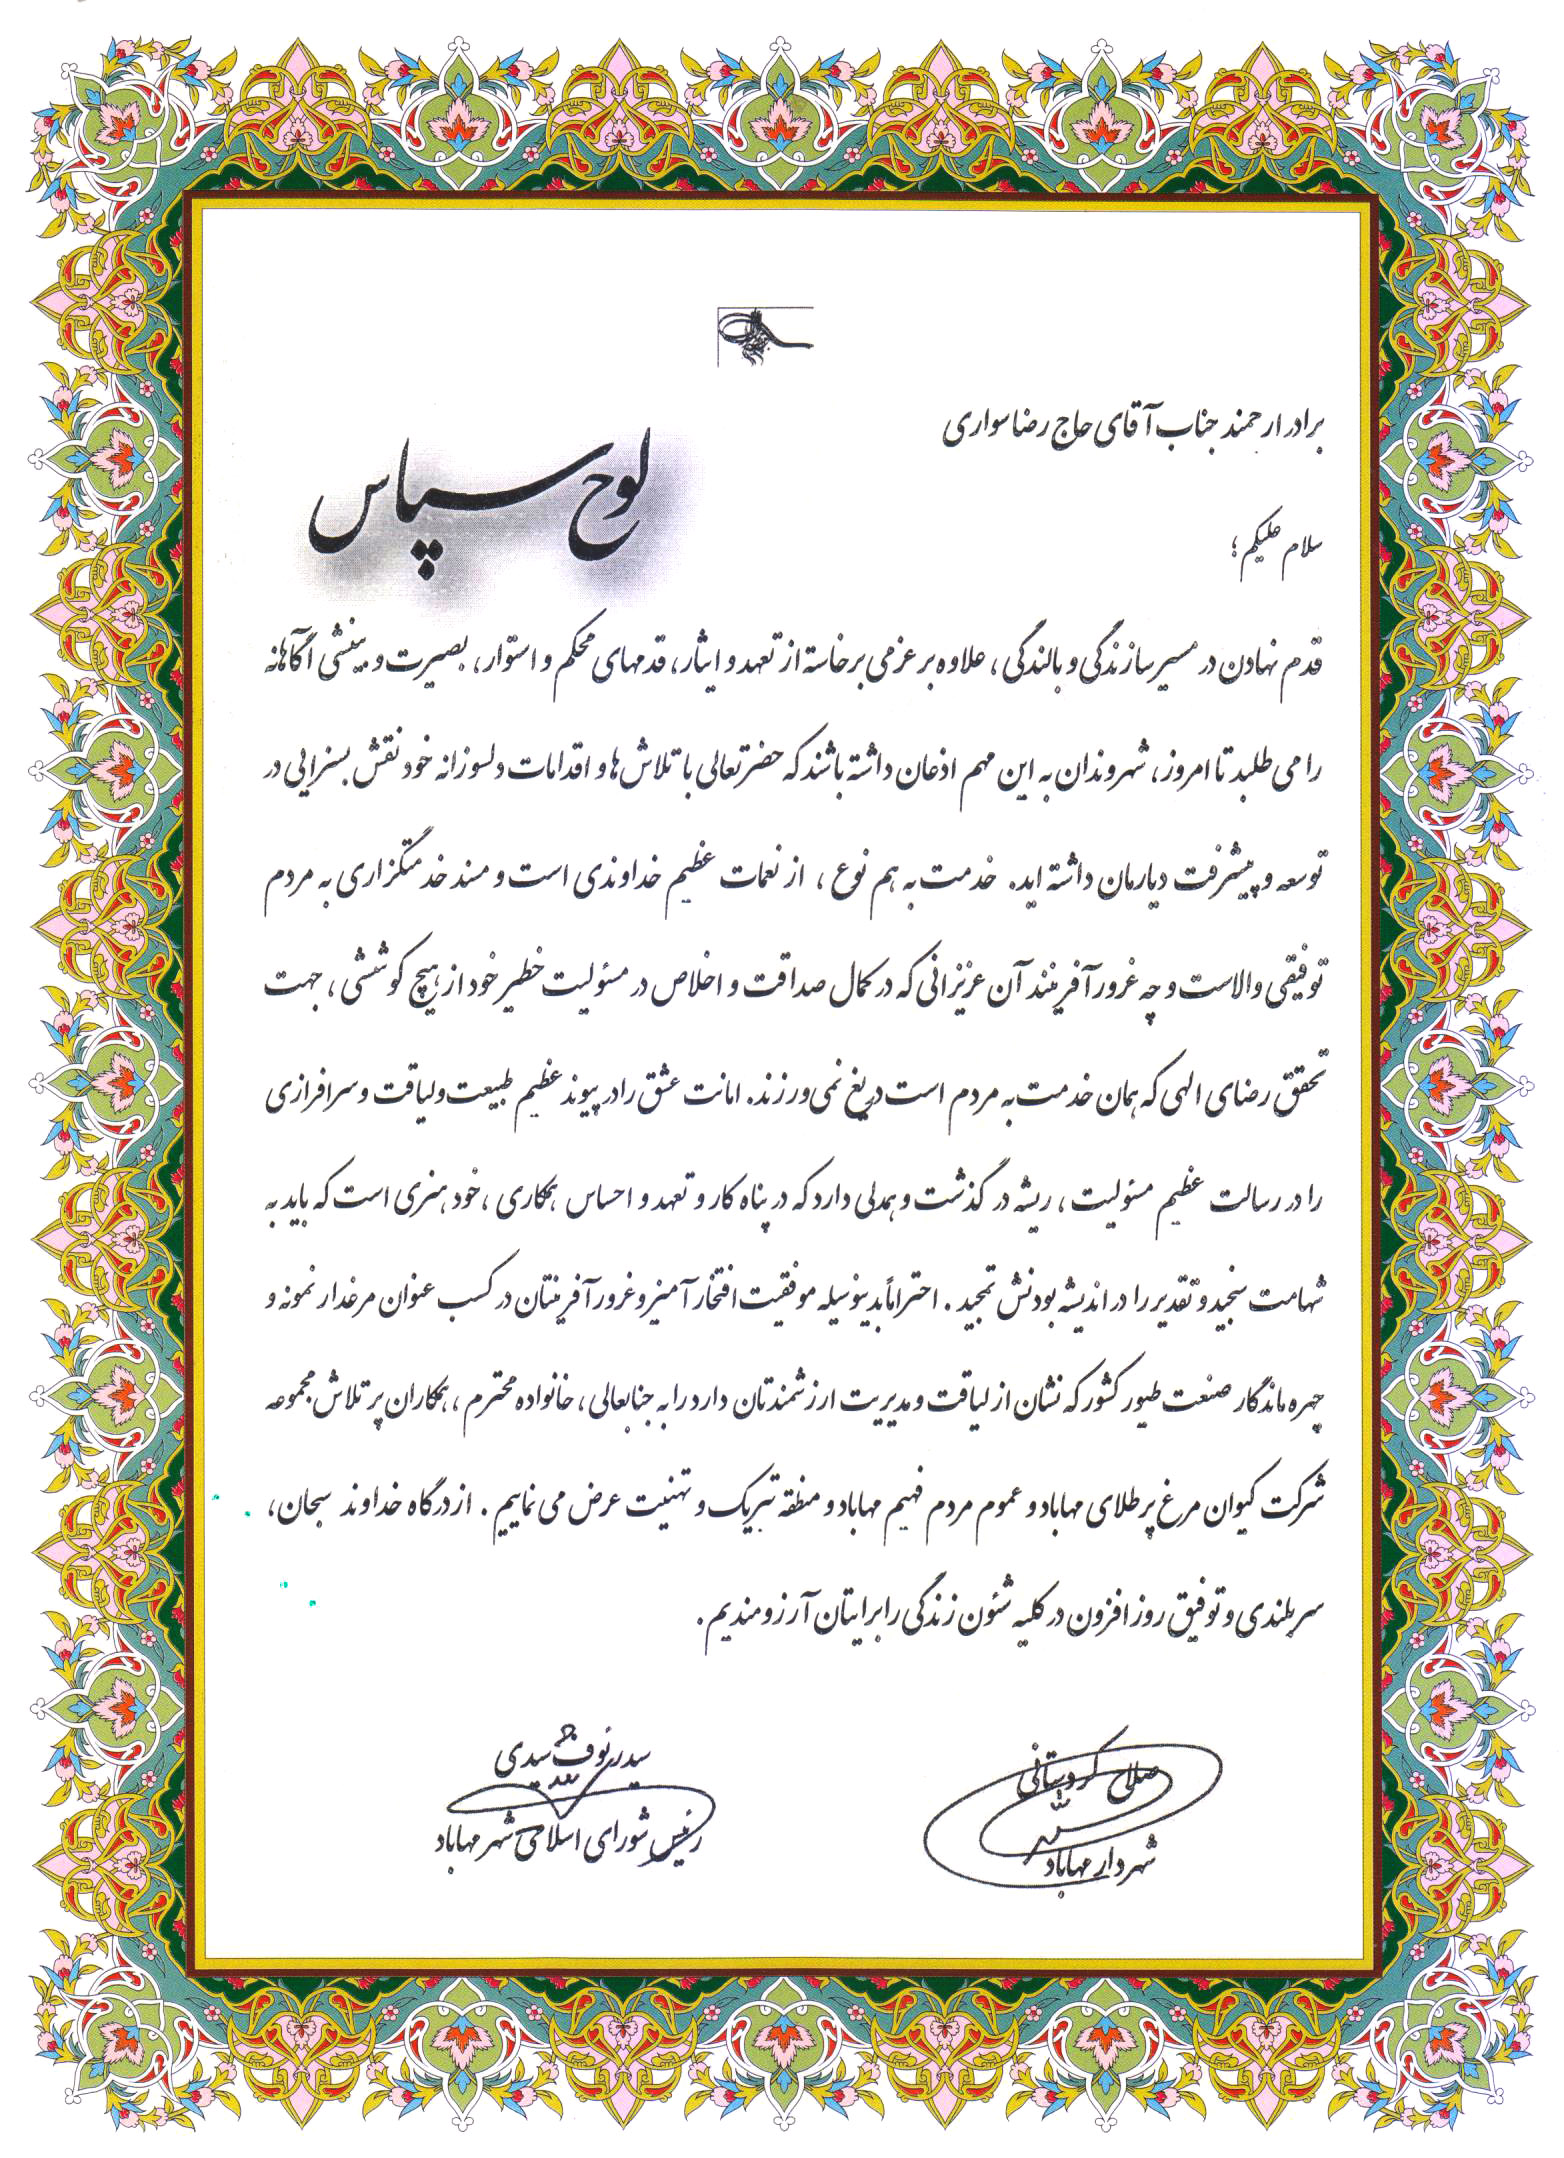 برادر ارجمند جناب آقای حاج رضا سواری
لوح سپاس
سلام علیکم ؛
قدم نهادن در مسیر سازندگی و بالندگی ، علاوه بر عزمی برخاسته از تعهد و ایثار، قدمهای محکم و استوار ، بصیرت و بینشی آگاهانه
را می طلبد تا امروز، شهروندان به این مهم اذعان داشته باشند که حضرتعالی با تلاش ها و اقدامات دلسوزانه خود نقش بسزایی در
توسعه و پیشرفت دیارمان داشته اید. خدمت به هم نوع ، از نعمات عظیم خداوندی است و مسند خدمتگزاری به مردم
توفیقی والاست و چه غرورآفرینند آن عزیزانی که در کمال صداقت و اخلاص در مسئولیت خطیر خود از هیچ کوششی ، جهت
تحقق رضای الهی که همان خدمت به مردم است دریغ نمی ورزند. امانت عشق را در پیوند عظیم طبیعت و لیاقت و سرافرازی
را در رسالت عظیم مسئولیت ، ریشه در گذشت و همدلی دارد که در پناه کار و تعهد و احساس همکاری ، خود هنری است که باید به
شهامت سنجید و تقدیر را در اندیشه بودنش تمجید . احتراماً بدینوسیله موفقیت افتخارآمیز و غرورآفرینتان در کسب عنوان مرغدار نمونه و
چهره ماندگار صنعت طیور کشور که نشان از لیاقت و مدیریت ارزشمندتان دارد را به جنابعالی ، خانواده محترم ، همکاران پر تلاش مجموعه
شرکت کیوان مرغ پرطلای مهاباد و عموم مردم فهیم مهاباد و منطقه تبریک و تهنیت عرض می نماییم . از درگاه خداوند سبحان،
سربلندی و توفیق روز افزون در کلیه شئون زندگی را برایتان آرزومندیم.
صلاح کردستانی
شهردار مهاباد
سید رئوف سیدی
رئیس شورای اسلامی شهر مهاباد